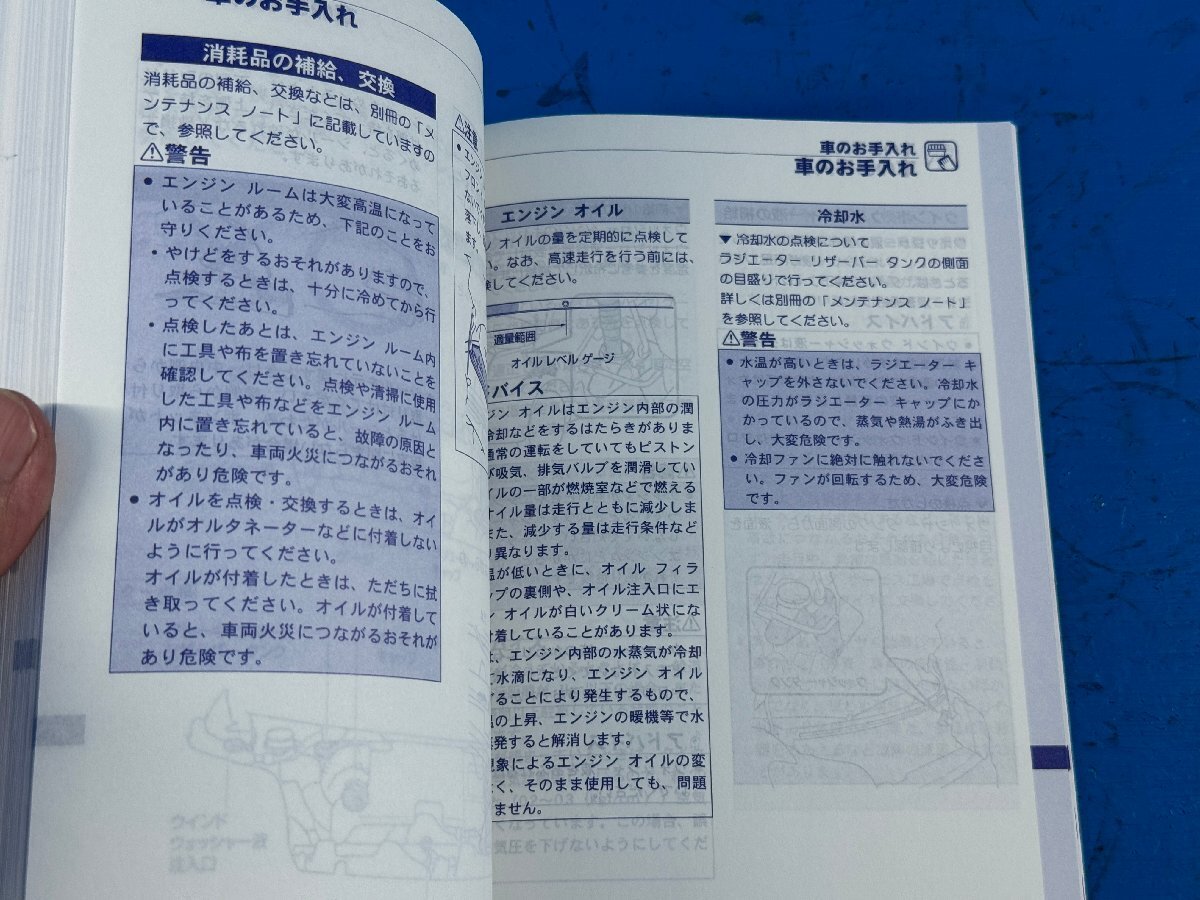 車のお手入れ
消耗品の補給、交換
消耗品の補給、交換などは、別冊の「メ
ンテナンス ノート」に記載していますの
で、参照してください。
⚠警告
• エンジン ルームは大変高温になって
いることがあるため、下記のことをお
守りください。
• やけどをするおそれがありますので、
点検するときは、十分に冷めてから行
ってください。
• 点検したあとは、エンジン ルーム内
に工具や布を置き忘れていないことを
確認してください。点検や清掃に使用
した工具や布などをエンジン ルーム
内に置き忘れていると、故障の原因と
なったり、車両火災につながるおそれ
があり危険です。
• オイルを点検・交換するときは、オイ
ルがオルタネーターなどに付着しない
ように行ってください。
オイルが付着したときは、ただちに拭
き取ってください。オイルが付着して
いると、車両火災につながるおそれが
あり危険です。
⚠注意
車のお手入れ
車のお手入れ
エンジン オイル
ン オイルの量を定期的に点検して
い。なお、高速走行を行う前には、
検してください。
適量範囲
オイル レベル ゲージ
バイス
ジン オイルはエンジン内部の潤
冷却などをするはたらきがありま
通常の運転をしていてもピストン
び吸気、排気バルブを潤滑してい
イルの一部が燃焼室などで燃える
オイル量は走行とともに減少しま
また、減少する量は走行条件など
り異なります。
温が低いときに、オイル フィラ
ップの裏側や、オイル注入口にエ
ン オイルが白いクリーム状にな
付着していることがあります。
は、エンジン内部の水蒸気が冷却
て水滴になり、エンジン オイル
ざることにより発生するもので、
温の上昇、エンジンの暖機等で水
発すると解消します。
現象によるエンジン オイルの変
く、そのまま使用しても、問題
ません。
冷却水
▼ 冷却水の点検について
ラジエーター リザーバー タンクの側面
の目盛りで行ってください。
詳しくは別冊の「メンテナンス ノート」
を参照してください。
⚠警告
• 水温が高いときは、ラジエーター キ
ャップを外さないでください。冷却水
の圧力がラジエーター キャップにか
かっているので、蒸気や熱湯がふき出
し、大変危険です。
• 冷却ファンに絶対に触れないでくださ
い。ファンが回転するため、大変危険
です。